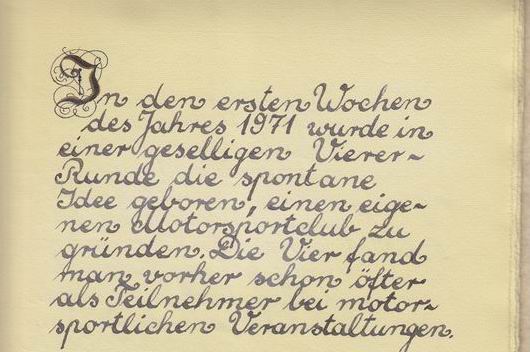 In den ersten Wochen
des Jahres 1971 wurde in
einer geselligen Vierer-
Runde die spontane
Idee geboren, einen eige-
nen Motorsportclub zu
gründen. Die Vier fand
man vorher schon öfter
als Teilnehmer bei motor-
sportlichen Veranstaltungen.